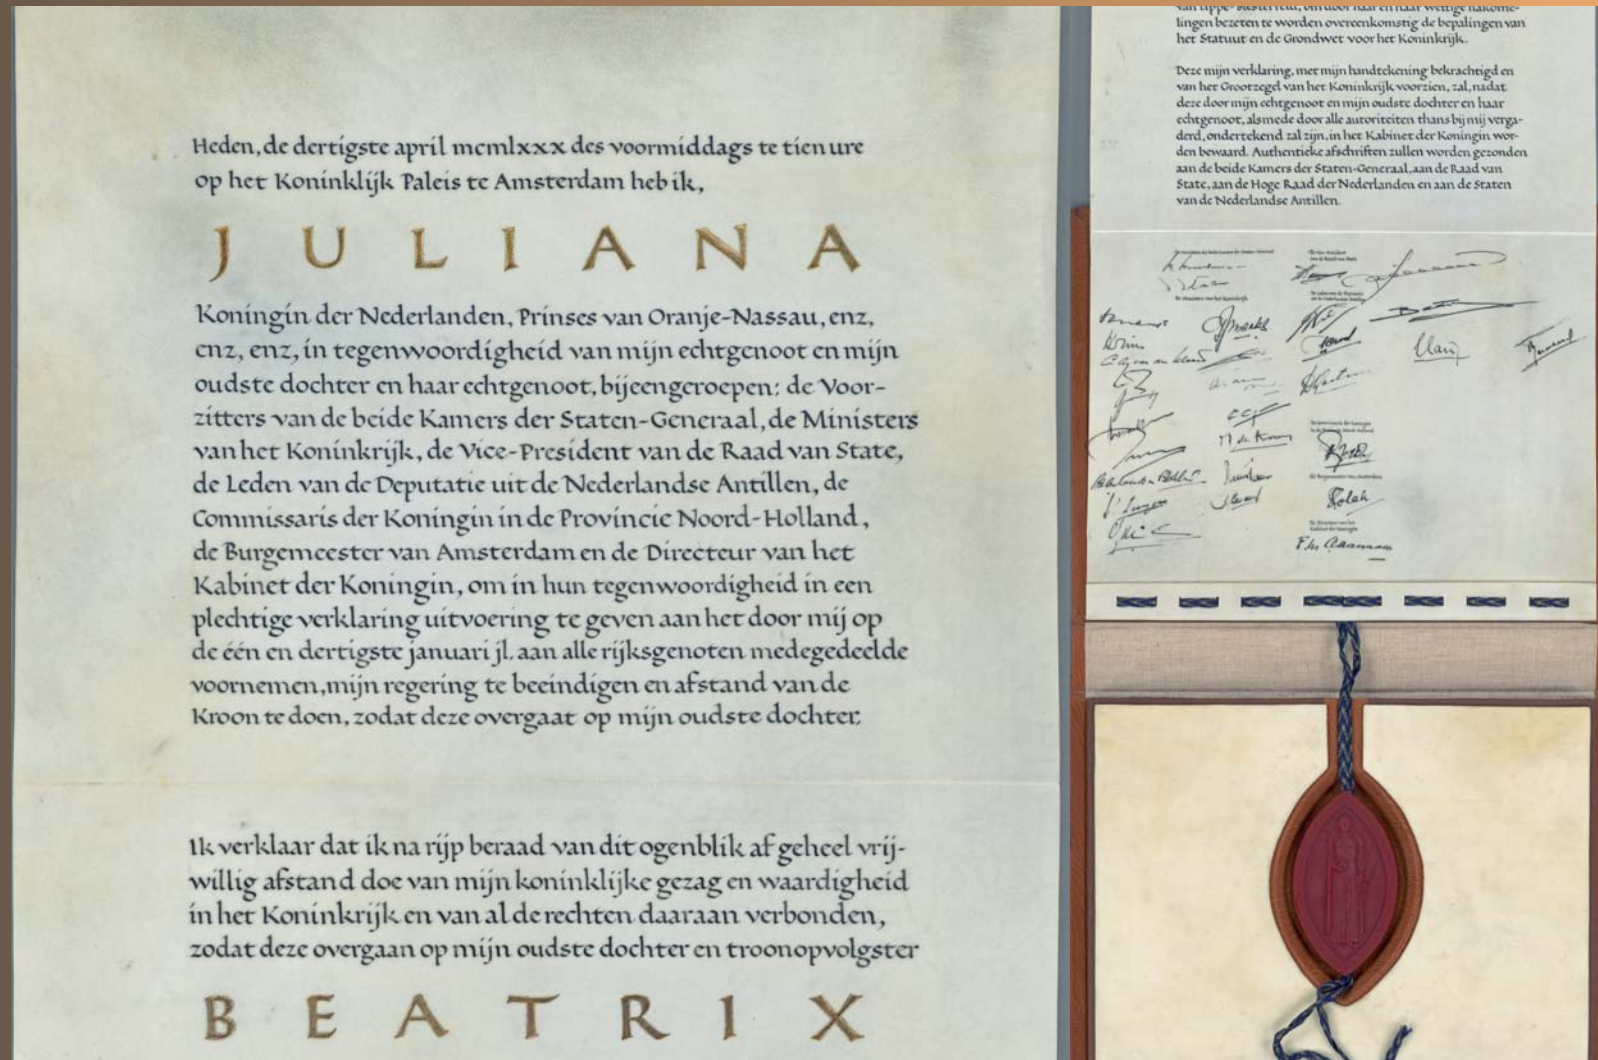 Heden, de dertigste april mcmlxxx des voormiddags te tien ure
op het Koninklijk Paleis te Amsterdam heb ik,
JULIANA
Koningin der Nederlanden, Prinses van Oranje-Nassau, enz,
enz, enz, in tegenwoordigheid van mijn echtgenoot en mijn
oudste dochter en haar echtgenoot, bijeengeroepen: de Voor-
zitters van de beide Kamers der Staten-Generaal, de Ministers
van het Koninkrijk, de Vice-President van de Raad van State,
de Leden van de Deputatie uit de Nederlandse Antillen, de
Commissaris der Koningin in de Provincie Noord-Holland,
de Burgemeester van Amsterdam en de Directeur van het
Kabinet der Koningin, om in hun tegenwoordigheid in een
plechtige verklaring uitvoering te geven aan het door mij op
de één en dertigste januari jl. aan alle rijksgenoten medegedeelde
voornemen, mijn regering te beeindigen en afstand van de
Kroon te doen, zodat deze overgaat op mijn oudste dochter.
Ik verklaar dat ik na rijp beraad van dit ogenblik af geheel vrij-
willig afstand doe van mijn koninklijke gezag en waardigheid
in het Koninkrijk en van al de rechten daaraan verbonden,
zodat deze overgaan op mijn oudste dochter en troonopvolgster
BEATRIX
van Lippe-Biesterfeld, om door haar en haar wettige nakome-
lingen bezeten te worden overeenkomstig de bepalingen van
het Statuut en de Grondwet voor het Koninkrijk.
Deze mijn verklaring, met mijn handtekening bekrachtigd en
van het Grootzegel van het Koninkrijk voorzien, zal, nadat
deze door mijn echtgenoot en mijn oudste dochter en haar
echtgenoot, alsmede door alle autoriteiten thans bij mij verga-
derd, ondertekend zal zijn, in het Kabinet der Koningin wor-
den bewaard. Authentieke afschriften zullen worden gezonden
aan de beide Kamers der Staten-Generaal, aan de Raad van
State, aan de Hoge Raad der Nederlanden en aan de Staten
van de Nederlandse Antillen.